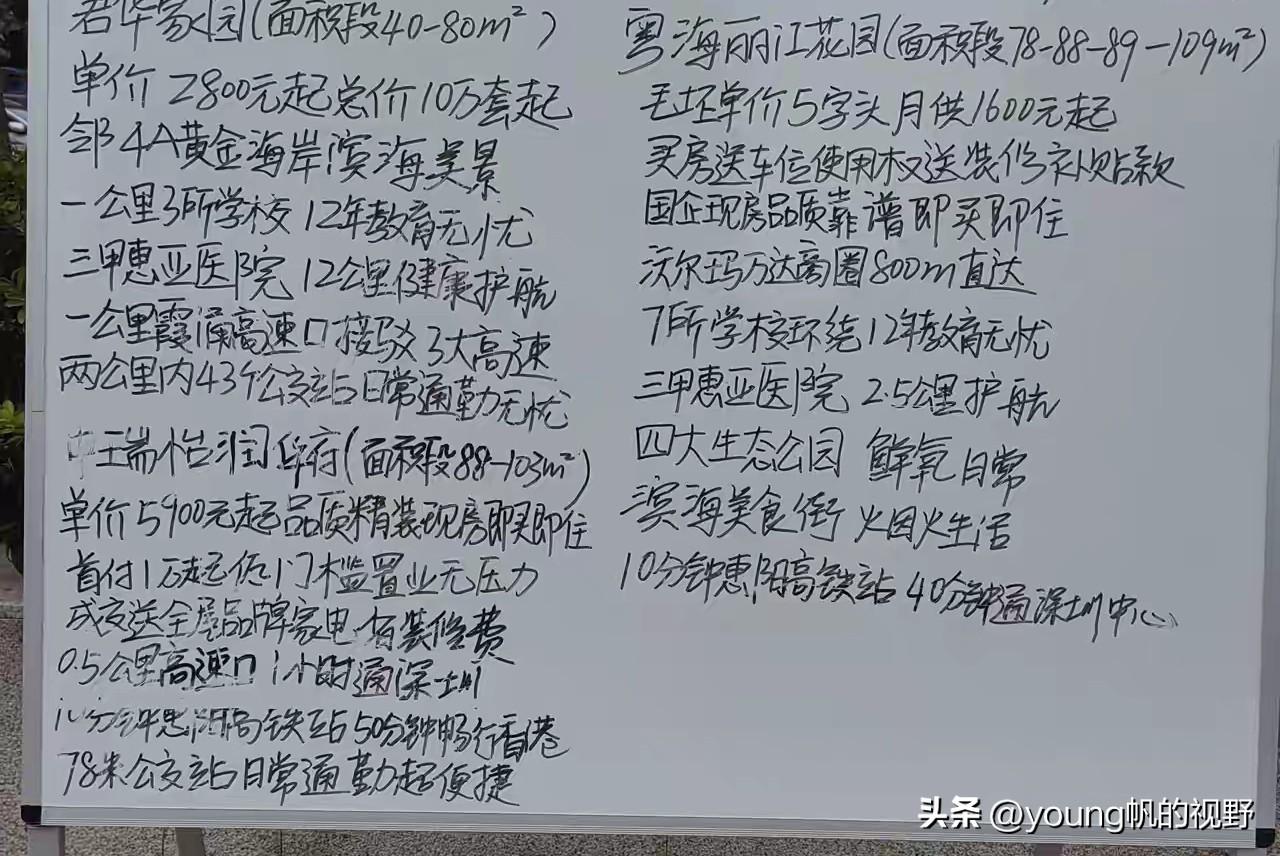 君华家园(面积段40-80m²)
单价2800元起总价10万套起
邻4A黄金海岸滨海美景
一公里3所学校 12年教育无忧
三甲惠亚医院 12公里健康护航
一公里霞涌高速口接驳3大高速
两公里内43个公交站日常通勤无忧
中瑞怡润华府(面积段88-103m²)
单价5900元起品质精装现房即买即住
首付1万起低门槛置业无压力
成交送全屋品牌家电 省装修费
0.5公里高速口 1小时通深圳
10分钟惠阳高铁站50分钟畅行香港
78米公交站日常通勤超便捷
粤海丽江花园(面积段78-88-89-109m²)
毛坯单价5字头月供1600元起
买房送车位使用权送装修补贴款
国企现房品质靠谱即买即住
沃尔玛万达商圈800m直达
7所学校环绕12年教育无忧
三甲惠亚医院 2.5公里护航
四大生态公园 鲜氧日常
滨海美食街 烟火生活
10分钟惠阳高铁站 40分钟通深圳中心
头条 @young帆的视野